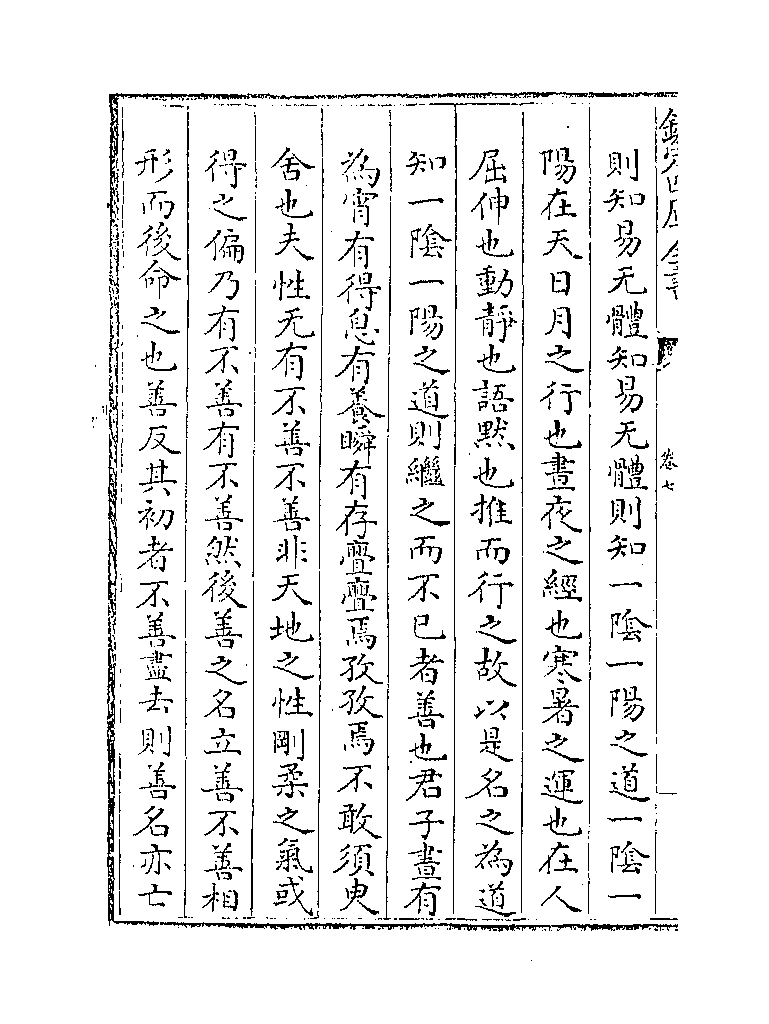 欽定四庫全書
卷七
則知易无體知易无體則知一陰一陽之道一陰一
陽在天日月之行也晝夜之經也寒暑之運也在人
屈伸也動靜也語默也推而行之故以是名之為道
知一陰一陽之道則繼之而不已者善也君子晝有
為宵有得息有養瞬有存亹亹焉孜孜焉不敢須臾
舍也夫性无有不善不善非天地之性剛柔之氣或
得之偏乃有不善有不善然後善之名立善不善相
形而後命之也善反其初者不善盡去則善名亦亡